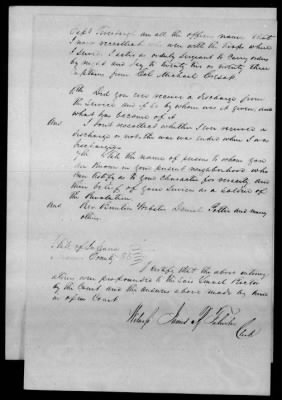 Capt Tinsbury are all the officers names that
I now recollect who were with the troops where
I served. I acted as orderly sergeant to carry orders
by night and day to twenty two or twenty three
Captains from Col. Michael Cresap
6th Did you ever receive a discharge from
the service and if so by whom was it given, and
what has become of it
Ans I don't recollect whether I ever received a
discharge or not. the war was ended when I was
discharged
7th State the names of persons to whom you
are known in your present neighborhood who
can testify as to your character for veracity and
their belief of your services as a soldier of
the Revolution
Ans Rev. Webster Daniel and many
others
State of Indiana
County
I certify that the above interrog
atories were propounded to the said Rector
by the Court and the answers above made by him
in open Court
Witness James
Clerk